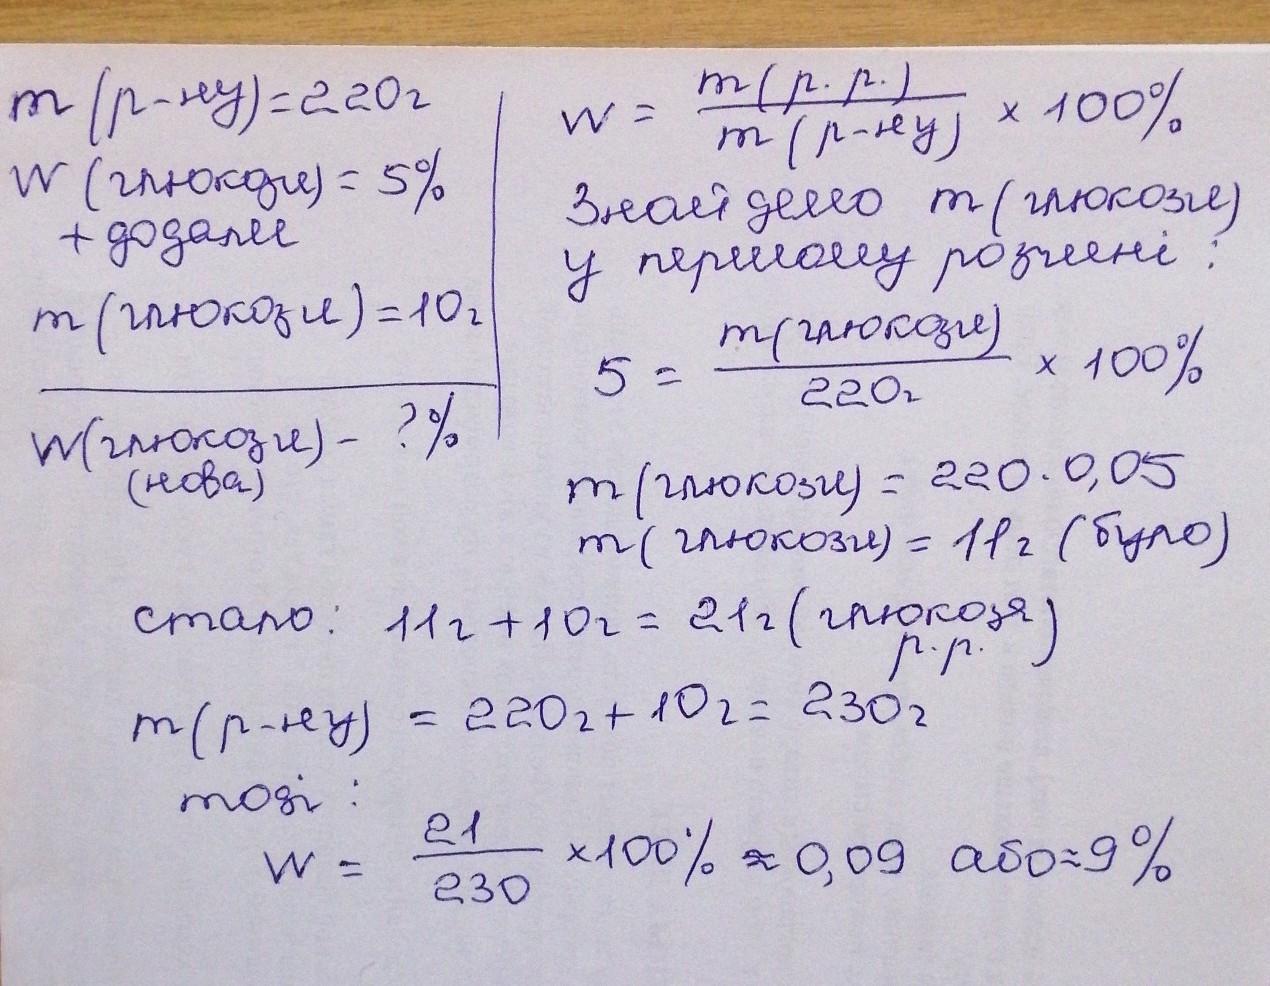 m (р-ну) = 220г
W (глюкози) = 5%
+ додали
m (глюкози) = 10г
W(глюкози) - ?%
(нова)
W = m(р.р.) / m(р-ну) × 100%
Знайдемо m(глюкози)
у першому розчині :
5 = m(глюкози) / 220г × 100%
m(глюкози) = 220 · 0,05
m(глюкози) = 11г (було)
стало: 11г + 10г = 21г (глюкозя
р.р.)
m(р-ну) = 220г + 10г = 230г
тоді :
W = 21 / 230 ×100% ≈ 0,09 або ≈ 9%